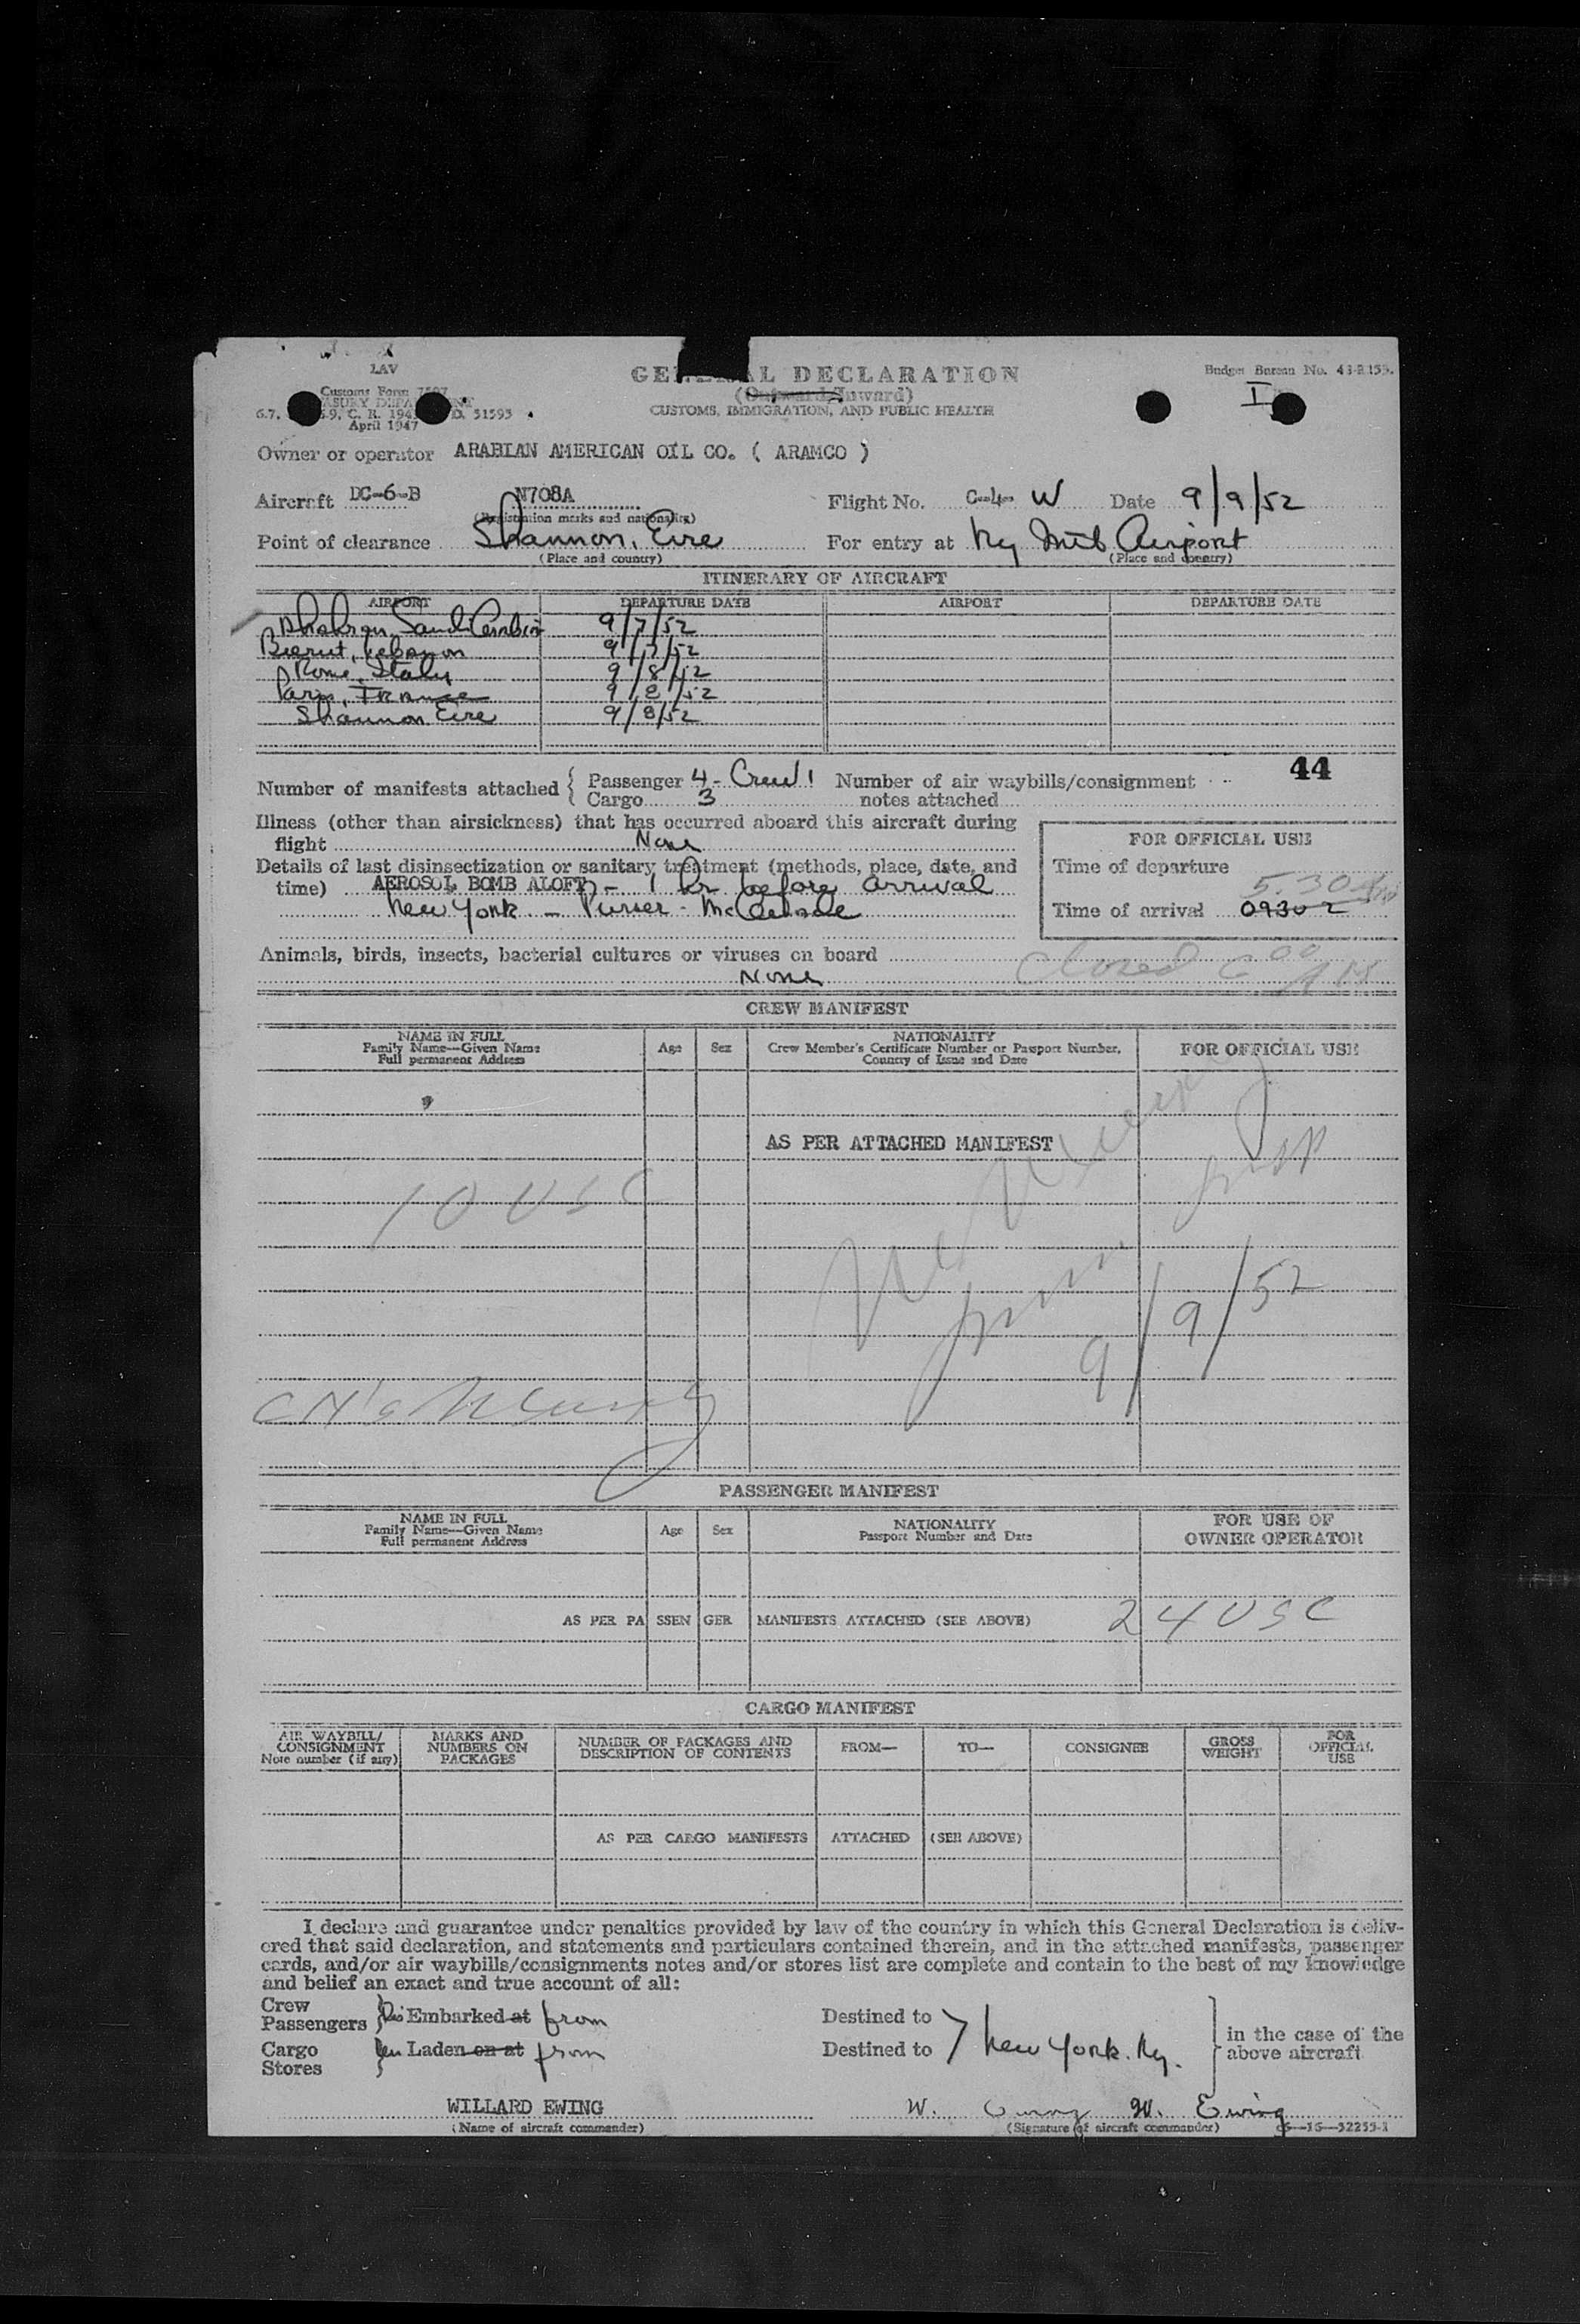 LAV
GENERAL DECLARATION
Budget Bureau No. 43-R155.
Customs Form 7507
(Outward/Inward)
I
CUSTOMS, IMMIGRATION, AND PUBLIC HEALTH
April 1947
Owner or operator ARABIAN AMERICAN OIL CO. ( ARAMCO )
Aircraft DC-6-B N708A Flight No. C-4- W Date 9/9/52
(Registration marks and nationality)
Point of clearance Shannon, Eire For entry at Ny Int Airport
(Place and country) (Place and country)
ITINERARY OF AIRCRAFT
AIRPORT DEPARTURE DATE AIRPORT DEPARTURE DATE
Dhahran, Saudi Arabia 9/7/52
Beirut, Lebanon 9/7/52
Rome, Italy 9/8/52
Paris, France 9/8/52
Shannon Eire 9/8/52
44
Number of manifests attached { Passenger 4 - Crew 1 Number of air waybills/consignment
Cargo 3 notes attached
Illness (other than airsickness) that has occurred aboard this aircraft during
flight None
FOR OFFICIAL USE
Details of last disinsectization or sanitary treatment (methods, place, date, and
time) AEROSOL BOMB ALOFT - 1 hr before arrival
New York - Purser -
Time of departure
5:30
Time of arrival 0930z
Animals, birds, insects, bacterial cultures or viruses on board
None
Closed 6 00
CREW MANIFEST
NAME IN FULL
Family Name—Given Name
Full permanent Address
Age Sex
NATIONALITY
Crew Member's Certificate Number or Passport Number,
Country of Issue and Date
FOR OFFICIAL USE
AS PER ATTACHED MANIFEST
10 USC
9/9/52
PASSENGER MANIFEST
NAME IN FULL
Family Name—Given Name
Full permanent Address
Age Sex
NATIONALITY
Passport Number and Date
FOR USE OF
OWNER OPERATOR
AS PER PA SSEN GER MANIFESTS ATTACHED (SEE ABOVE) 24 USC
CARGO MANIFEST
AIR WAYBILL/
CONSIGNMENT
Note number (if any)
MARKS AND
NUMBERS ON
PACKAGES
NUMBER OF PACKAGES AND
DESCRIPTION OF CONTENTS
FROM— TO— CONSIGNEE
GROSS
WEIGHT
FOR
OFFICIAL
USE
AS PER CARGO MANIFESTS ATTACHED (SEE ABOVE)
I declare and guarantee under penalties provided by law of the country in which this General Declaration is deliv-
ered that said declaration, and statements and particulars contained therein, and in the attached manifests, passenger
cards, and/or air waybills/consignments notes and/or stores list are complete and contain to the best of my knowledge
and belief an exact and true account of all:
Crew
Passengers } Dis Embarked at from Destined to
Cargo
Stores } un Laden on at from Destined to New York. Ny. in the case of the
above aircraft
WILLARD EWING W. Ewing W. Ewing
(Name of aircraft commander) (Signature of aircraft commander) 16—52255-1